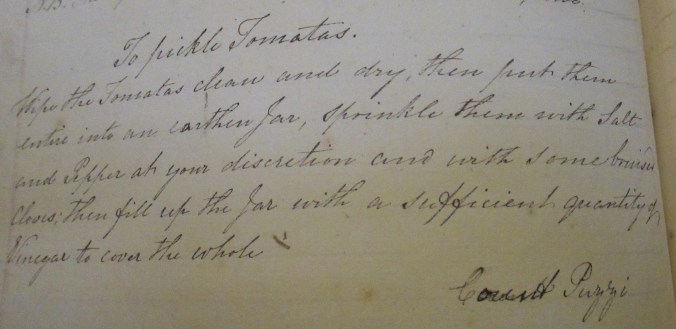 N.B.
To pickle Tomatas.
Wipe the Tomatas clean and dry, then put them
entire into an earthen Jar, sprinkle them with Salt
and Pepper at your discretion and with some bruised
Cloves; then fill up the Jar with a sufficient quantity of
Vinegar to cover the whole
Puzzi